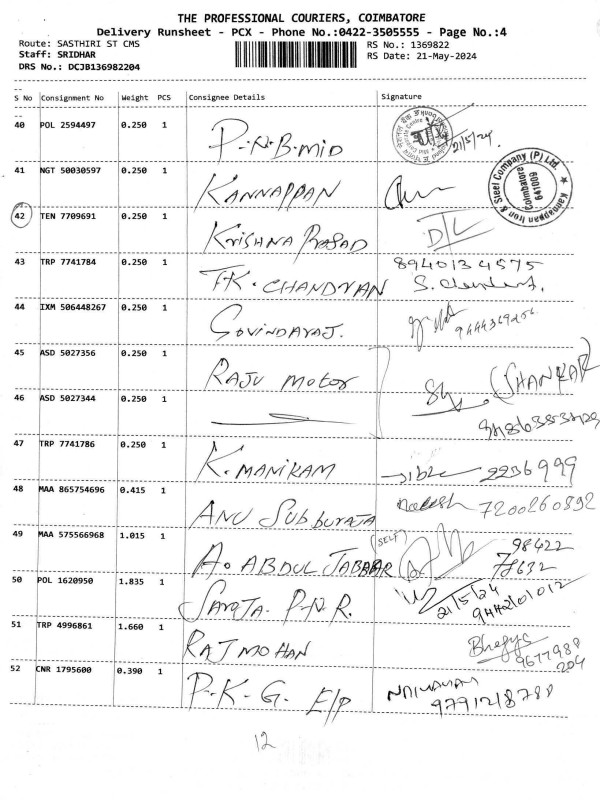 THE PROFESSIONAL COURIERS, COIMBATORE
Delivery Runsheet - PCX - Phone No.:0422-3505555 - Page No.:4
Route: SASTHIRI ST CMS RS No.: 1369822
Staff: SRIDHAR RS Date: 21-May-2024
DRS No.: DCJB136982204
S No Consignment No Weight PCS Consignee Details Signature
40 POL 2594497 0.250 1 P.N.B.MID 21/5/24
41 NGT 50030597 0.250 1 KANNAPPAN
Kannappan Iron & Steel Company (P) Ltd.
Coimbatore
641009
42 TEN 7709691 0.250 1 KRISHNA PRASAD
43 TRP 7741784 0.250 1 T.K. CHANDRAN 8940134575
44 IXM 506448267 0.250 1 GOVINDARAJ.
45 ASD 5027356 0.250 1 RAJU MOTOR (SHANKAR)
46 ASD 5027344 0.250 1
47 TRP 7741786 0.250 1 K. MANIKAM 2236999
48 MAA 865754696 0.415 1 ANU SUBBURAJA 7200260892
49 MAA 575566968 1.015 1 A. ABDUL JABBAR (SELF) 98422
78632
50 POL 1620950 1.835 1 SAROJA. P.N.R. 21/5/24
9442101012
51 TRP 4996861 1.660 1 RAJ MOHAN Bhagya
9677988
204
52 CNR 1795600 0.390 1 P.K.G. E/P
9791218788
12